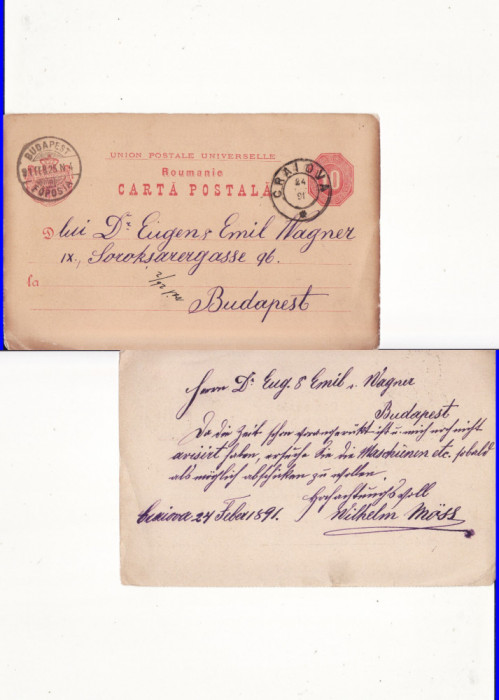 UNION POSTALE UNIVERSELLE
Roumanie
CARTĂ POSTALĂ
BUDAPEST
FŐPOSTA
CRAIOVA
24
91
10
D lui Dr. Eugen & Emil Wagner
IX., Soroksarergasse 96.
la
Budapest
Herrn Dr. Eug. & Emil v. Wagner
Budapest
Da die Zeit schon vorangerückt ist u. mich noch nicht
avisirt haben, ersuche Sie die Maschienen etc. sobald
als möglich abschicken zu wollen.
Hochachtungsvoll
Craiova 24 Feber 1891.
Wilhelm Möss